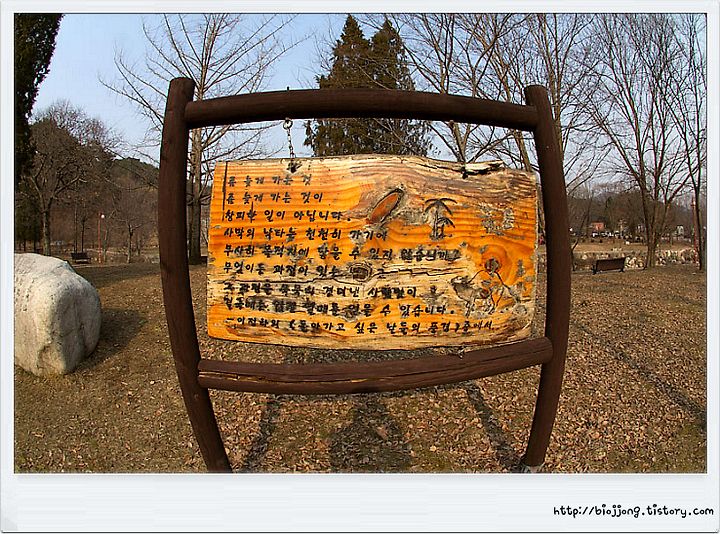 좀 늦게 가는 것
좀 늦게 가는 것이
창피한 일이 아닙니다.
사막의 낙타는 천천히 가기에
무사히 목적지에 닿을 수 있지 않습니까?
무엇이든 과정이 있는
그 과정을 묵묵히 견뎌낸 사람만이
결국에는 값진 열매를 얻을 수 있습니다.
-이정하의 돌아가고 싶은 날들의 풍경 중에서
http://biojjong.tistory.com